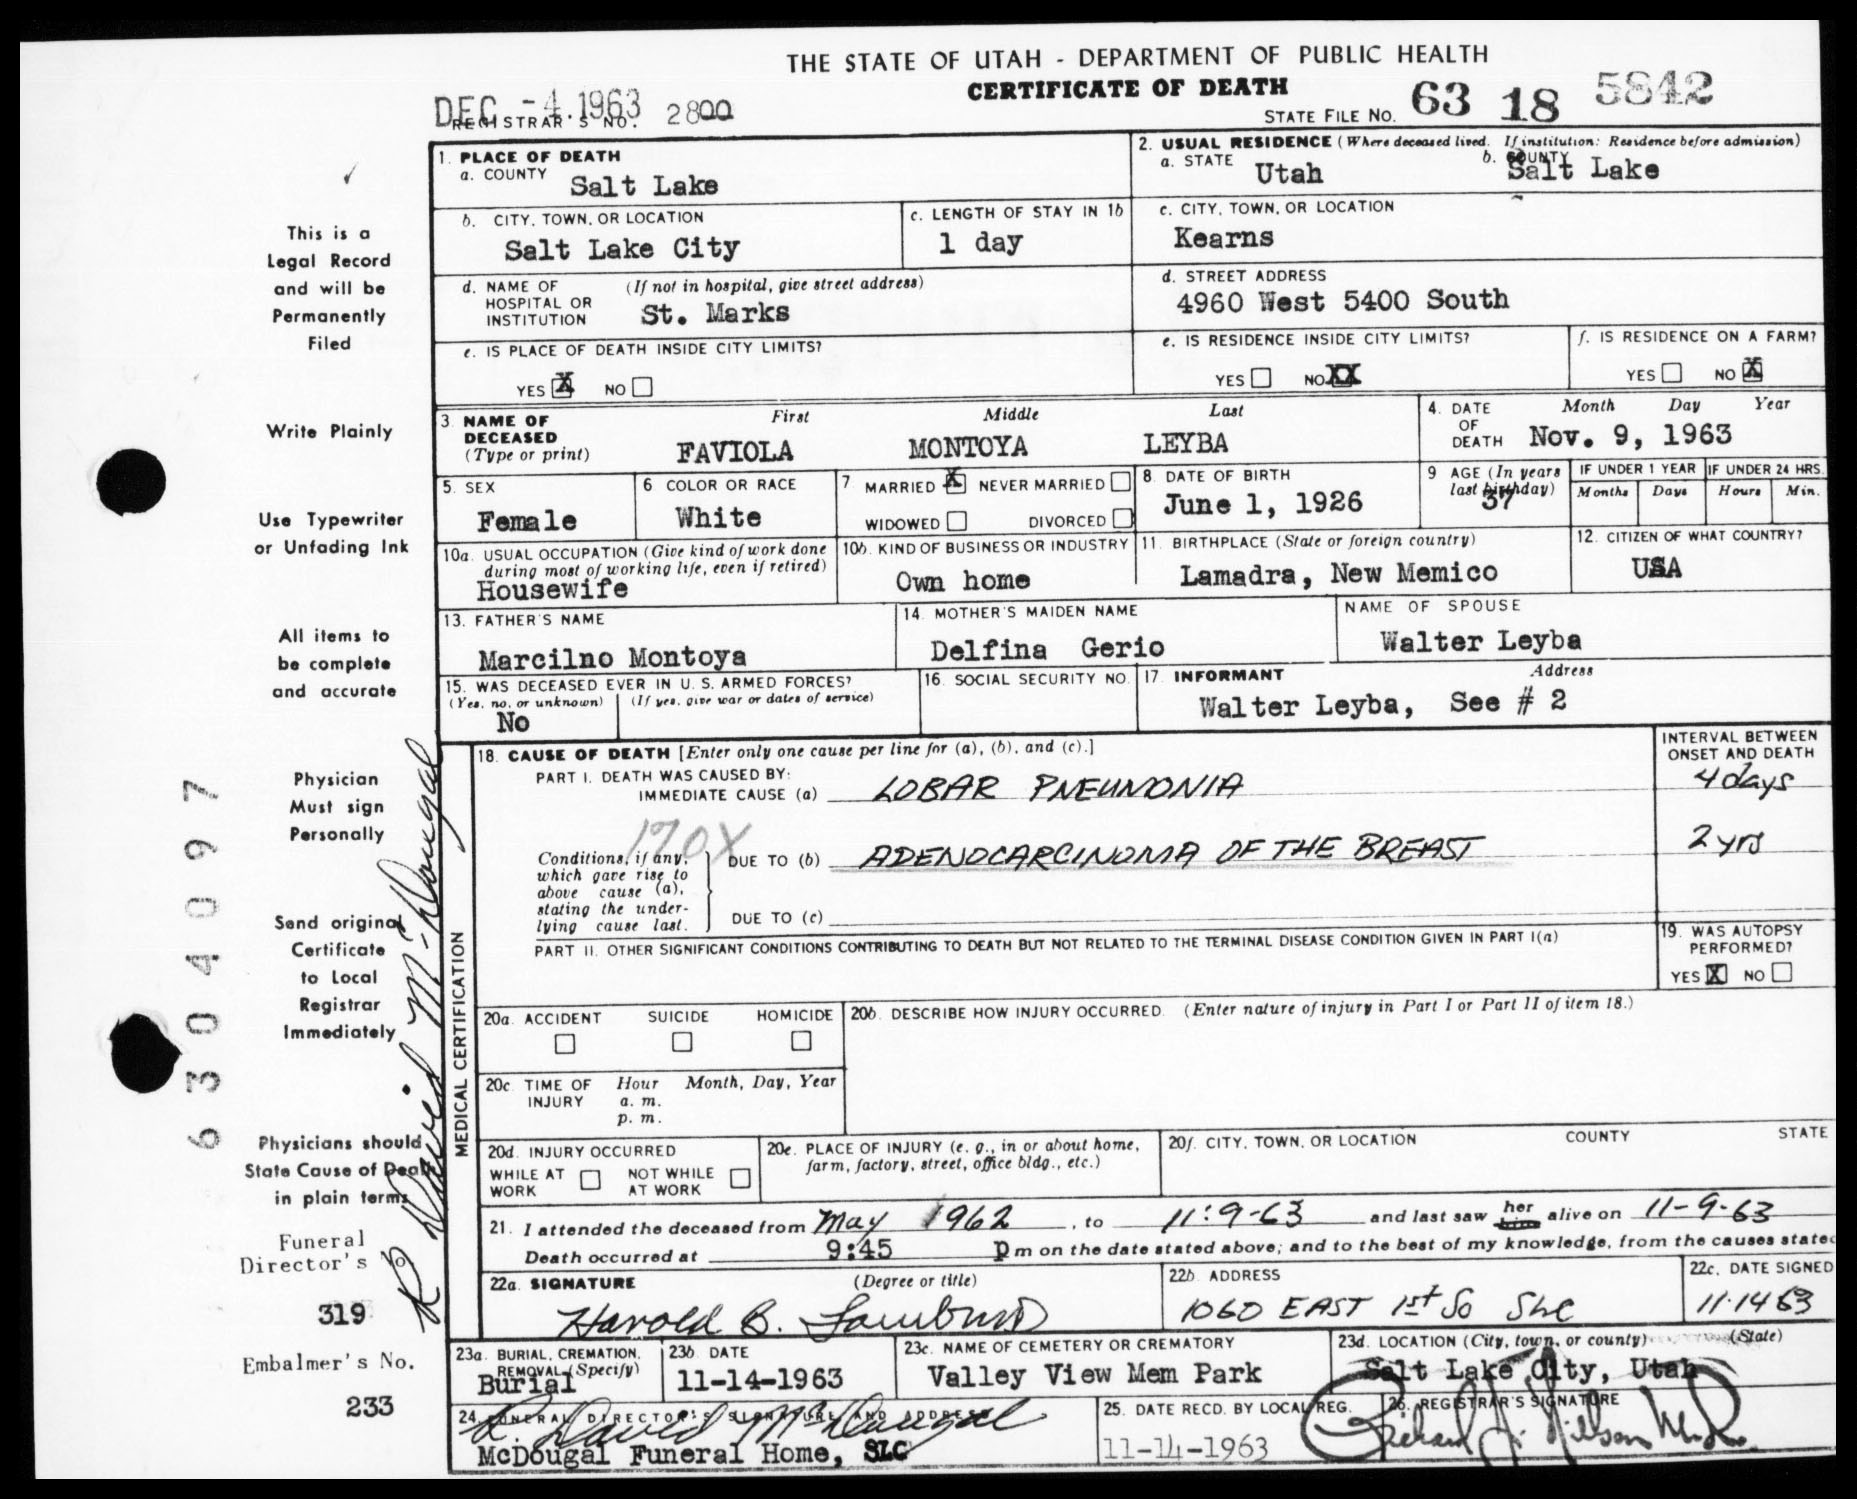 THE STATE OF UTAH - DEPARTMENT OF PUBLIC HEALTH
CERTIFICATE OF DEATH
DEC -4.1963 2800
REGISTRAR'S NO.
STATE FILE NO. 63 18 5842
1. PLACE OF DEATH
a. COUNTY Salt Lake
2. USUAL RESIDENCE (Where deceased lived. If institution: Residence before admission)
a. STATE Utah b. COUNTY Salt Lake
b. CITY, TOWN, OR LOCATION Salt Lake City
c. LENGTH OF STAY IN 1b 1 day
c. CITY, TOWN, OR LOCATION Kearns
d. NAME OF HOSPITAL OR INSTITUTION (If not in hospital, give street address) St. Marks
d. STREET ADDRESS 4960 West 5400 South
e. IS PLACE OF DEATH INSIDE CITY LIMITS?
YES X NO
e. IS RESIDENCE INSIDE CITY LIMITS?
YES NO XX
f. IS RESIDENCE ON A FARM?
YES NO X
3. NAME OF DECEASED (Type or print)
First Middle Last
FAVIOLA MONTOYA LEYBA
4. DATE OF DEATH Month Day Year
Nov. 9, 1963
5. SEX Female
6 COLOR OR RACE White
7. MARRIED X NEVER MARRIED
WIDOWED DIVORCED
8 DATE OF BIRTH June 1, 1926
9 AGE (In years last birthday) 37
IF UNDER 1 YEAR Months Days
IF UNDER 24 HRS. Hours Min.
10a. USUAL OCCUPATION (Give kind of work done during most of working life, even if retired)
Housewife
10b. KIND OF BUSINESS OR INDUSTRY Own home
11. BIRTHPLACE (State or foreign country) Lamadra, New Memico
12. CITIZEN OF WHAT COUNTRY? USA
13. FATHER'S NAME Marcilno Montoya
14. MOTHER'S MAIDEN NAME Delfina Gerio
NAME OF SPOUSE Walter Leyba
15. WAS DECEASED EVER IN U. S. ARMED FORCES?
(Yes, no, or unknown) (If yes, give war or dates of service)
No
16. SOCIAL SECURITY NO.
17. INFORMANT Address
Walter Leyba, See # 2
18. CAUSE OF DEATH [Enter only one cause per line for (a), (b), and (c).]
INTERVAL BETWEEN ONSET AND DEATH
PART I. DEATH WAS CAUSED BY:
IMMEDIATE CAUSE (a) LOBAR PNEUMONIA 4 days
170X
Conditions, if any, which gave rise to above cause (a), stating the underlying cause last.
DUE TO (b) ADENOCARCINOMA OF THE BREAST 2 yrs
DUE TO (c)
PART II. OTHER SIGNIFICANT CONDITIONS CONTRIBUTING TO DEATH BUT NOT RELATED TO THE TERMINAL DISEASE CONDITION GIVEN IN PART I(a)
19. WAS AUTOPSY PERFORMED?
YES X NO
20a. ACCIDENT SUICIDE HOMICIDE
20b. DESCRIBE HOW INJURY OCCURRED. (Enter nature of injury in Part I or Part II of item 18.)
20c. TIME OF INJURY Hour Month, Day, Year
a. m.
p. m.
20d. INJURY OCCURRED
WHILE AT WORK NOT WHILE AT WORK
20e. PLACE OF INJURY (e. g., in or about home, farm, factory, street, office bldg., etc.)
20f. CITY, TOWN, OR LOCATION COUNTY STATE
21. I attended the deceased from May 1962, to 11-9-63 and last saw her him alive on 11-9-63
Death occurred at 9:45 p m on the date stated above; and to the best of my knowledge, from the causes stated
22a. SIGNATURE (Degree or title)
Harold B.
22b. ADDRESS 1060 EAST 1st So SLC
22c. DATE SIGNED 11-14 63
23a. BURIAL, CREMATION, REMOVAL (Specify) Burial
23b. DATE 11-14-1963
23c. NAME OF CEMETERY OR CREMATORY Valley View Mem Park
23d. LOCATION (City, town, or county) (State)
Salt Lake City, Utah
24. FUNERAL DIRECTOR'S SIGNATURE AND ADDRESS
R. David McDougal
McDougal Funeral Home, SLC
25. DATE RECD. BY LOCAL REG. 11-14-1963
26. REGISTRAR'S SIGNATURE
Richard J. Nilson M.D.
MEDICAL CERTIFICATION
This is a
Legal Record
and will be
Permanently
Filed
Write Plainly
Use Typewriter
or Unfading Ink
All items to
be complete
and accurate
Physician
Must sign
Personally
Send original
Certificate
to Local
Registrar
Immediately
Physicians should
State Cause of Death
in plain terms
Funeral
Director's No
319
Embalmer's No.
233
R David McDougal
6304097